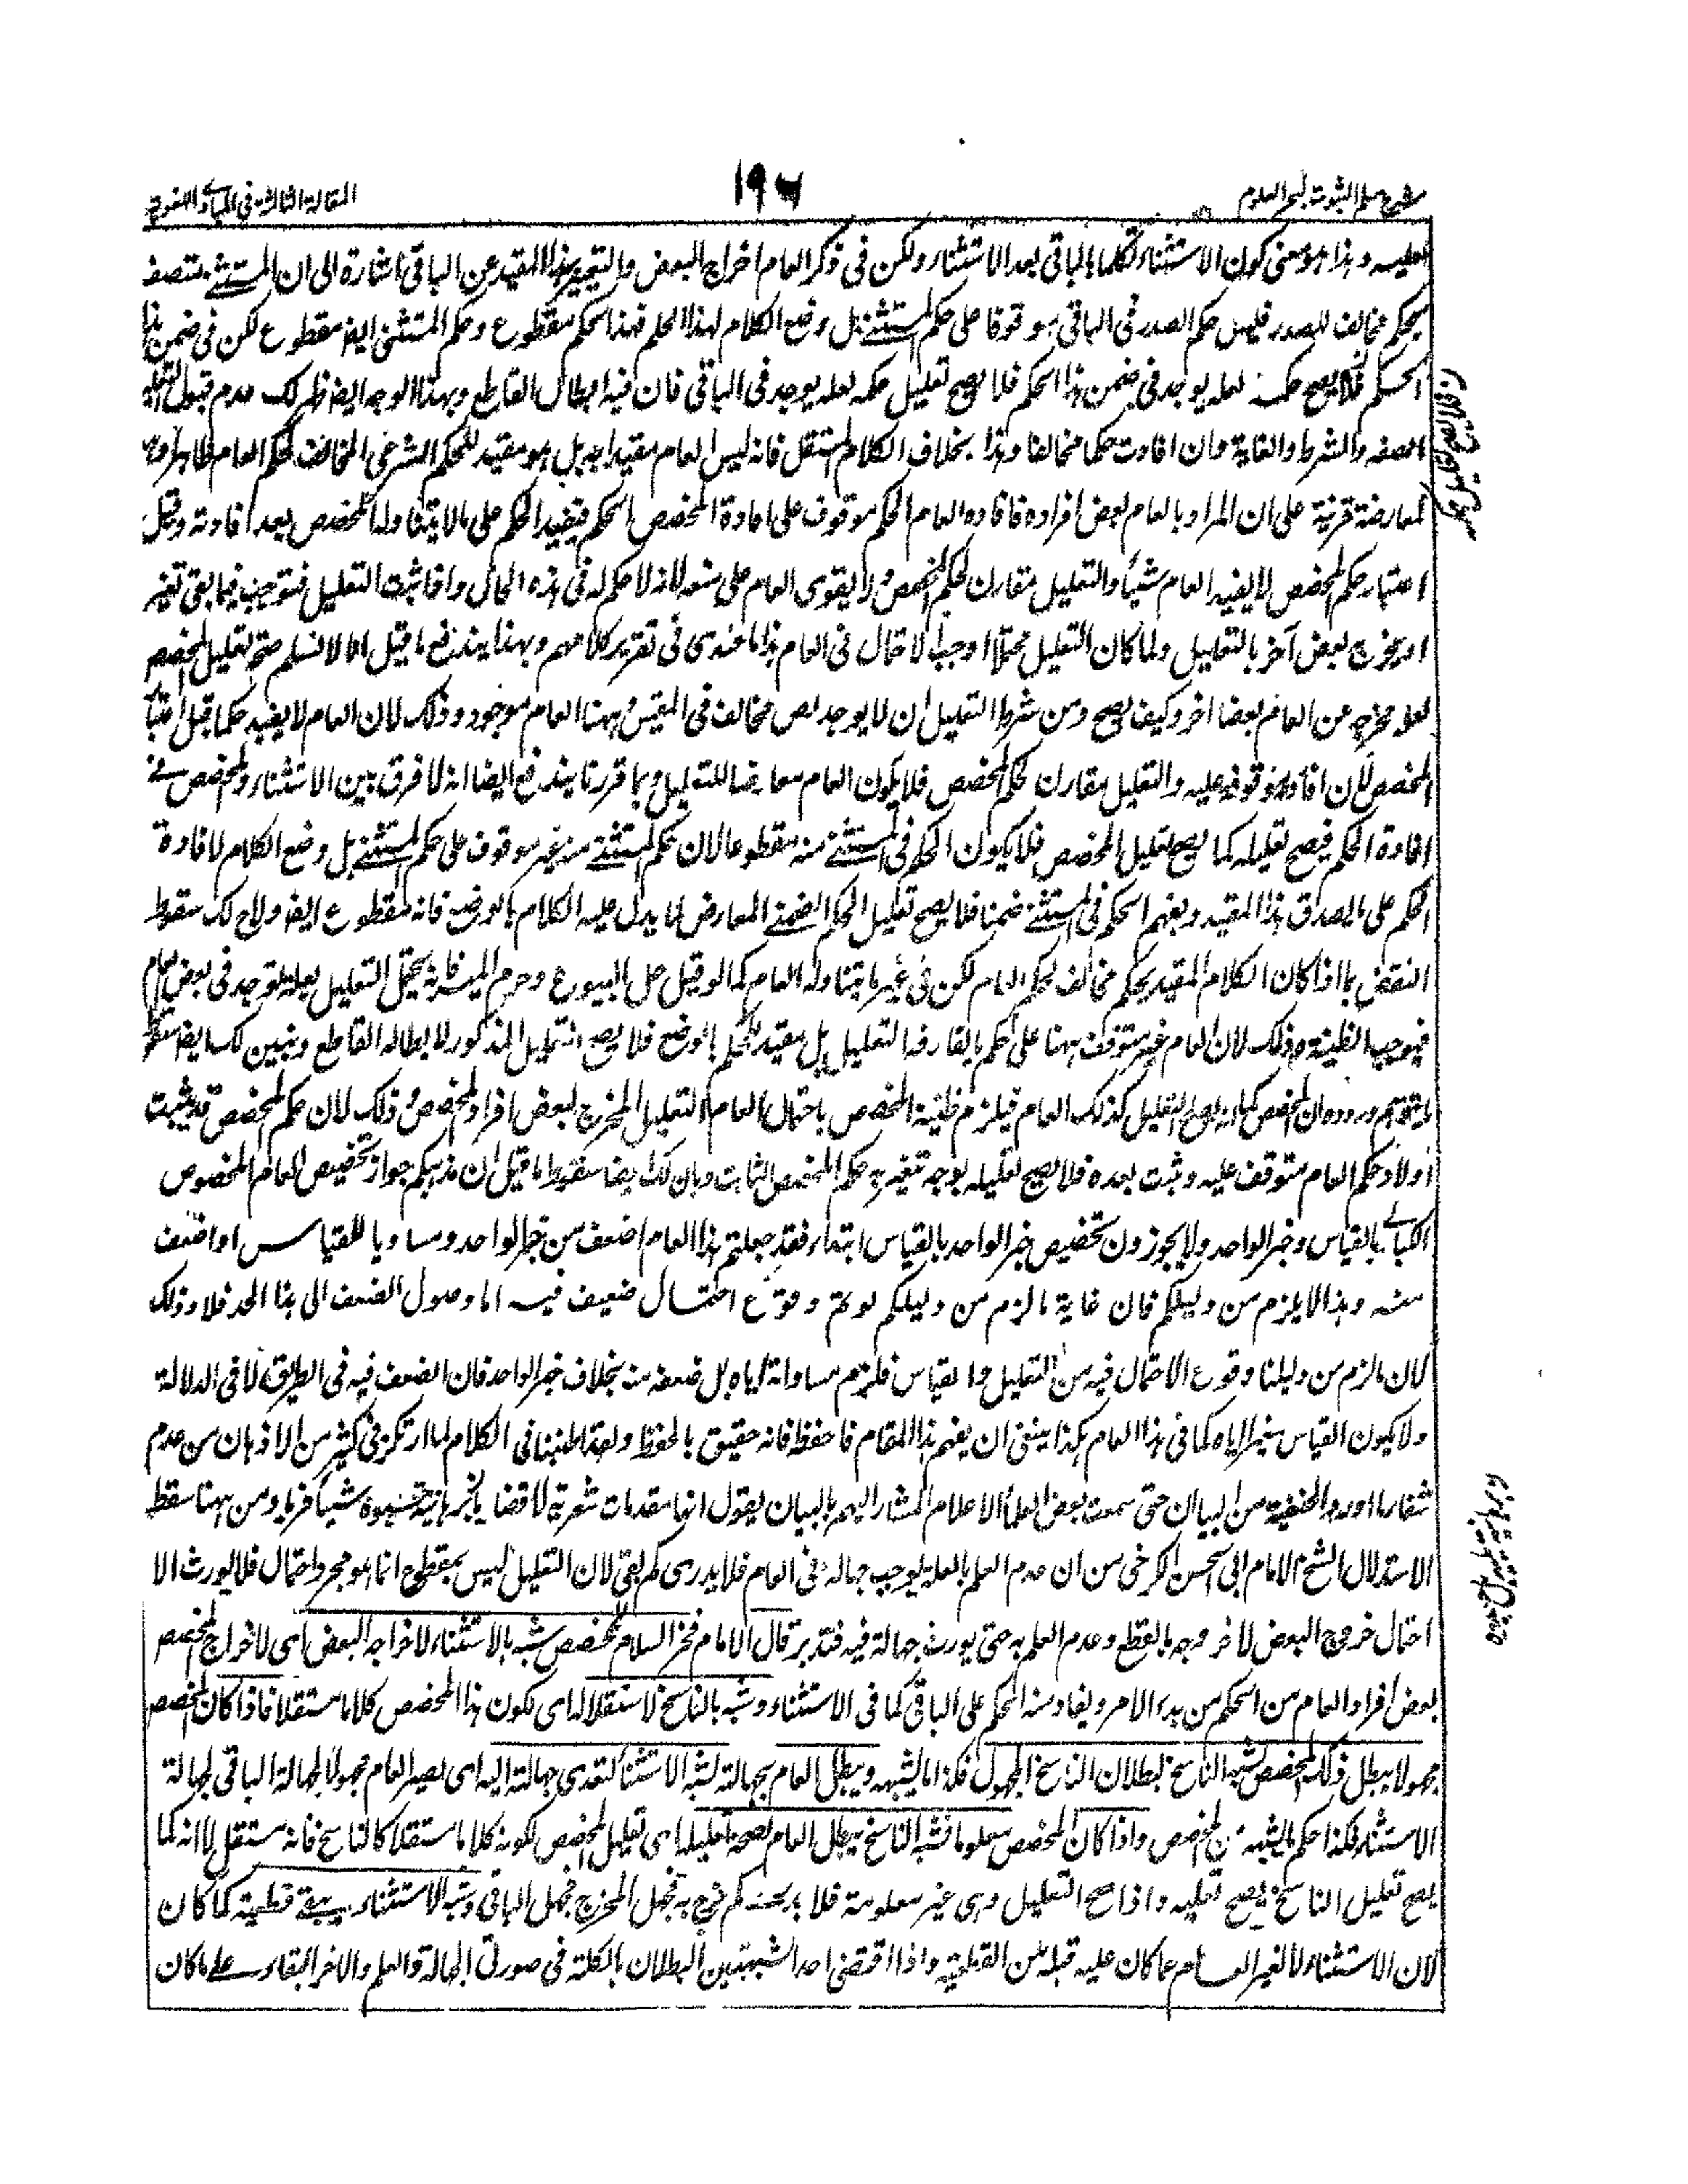 شرح مسلم الثبوت لبحر العلوم
١٩٦
المقالة الثالثة فى المبادى اللغوية
عليه وهذا هو معنى كون الاستثناء تكلما بالباقى بعد الاستثناء ولكن فى ذكر العام اخراج البعض والتعبير بهذا المقيد عن الباقى اشارة الى ان المستثنى متصف
بحكم مخالف للصدر فليس حكم الصدر فى الباقى موقوفا على حكم المستثنى بل وضع الكلام لهذا الحكم فهذا الحكم مقطوع وحكم المستثنى ايضا مقطوع لكن فى ضمن هذا
الحكم فلا يصح حكمه لعله يوجد فى ضمن هذا الحكم فلا يصح تعليل حكمه لعله يوجد فى الباقى فان فيه ابطال القاطع وبهذا الوجه ايضا ظهر لك عدم قبول
الصفه والشرط والغاية وان افادت حكما مخالفا وهذا بخلاف الكلام المستقل فانه ليس العام مقيدا به بل هو مفيد للحكم الشرعى المخالف لحكم العام
لمعارضة قرينة على ان المراد بالعام بعض افراده فافاده العام الحكم موقوف على افادة المخصص الحكم فيفيد الحكم على ما لا يتناوله المخصص بعد افادته وقبل
اعتبار حكم المخصص لا يفيد العام شيئا والتعليل مقارن لحكم المخصص ولا يقوى العام على منعه لانه لا حكم له فى هذه الحال واذا ثبت التعليل فتوجب فيما بقى تغير
او يخرج بعض آخر بالتعليل ولما كان التعليل محتملا اوجب الاحتمال فى العام هذا ما عندى فى تقرير كلامهم وبهذا يندفع ما قيل انا لا نسلم صحة تعليل المخصص
لعلة مخرجه عن العام بعضا آخر وكيف يصح ومن شرط التعليل ان لا يوجد نص مخالف فى المقيس وههنا العام موجود وذلك لان العام لا يفيد حكما قبل
المخصص لان افادته موقوفة عليه والتعليل مقارن لحكم المخصص فلا يكون العام معارضا للتعليل وبما قررنا يندفع ايضا انه لا فرق بين الاستثناء والمخصص فى
افادة الحكم فيصح تعليله كما يصح تعليل المخصص فلا يكون الحكم فى المستثنى منه مقطوعا لان حكم المستثنى منه غير موقوف على حكم المستثنى بل وضع الكلام لافادة
الحكم على ما يصدق هذا المقيد ويفهم الحكم فى المستثنى ضمنا فلا يصح تعليل الحكم الضمنى المعارض لما يدل عليه الكلام بالوضع فانه مقطوع ايضا ولاح لك سقوط
النقض بما اذا كان الكلام المقيد بحكم مخالف لحكم العام لكن فى غير ما يتناوله العام كما لو قيل حل البيوع وحرم الميسر فانه يحتمل التعليل بعلة توجد فى بعض
فيوجب الظنية وذلك لان العام غير متوقف ههنا على حكم ما يقارنه التعليل بل مفيد للحكم بالوضع فلا يصح التعليل المذكور لابطاله القاطع وتبين لك ايضا
ما يتوهم وروده ان المخصص كما انه يصح التعليل كذلك العام فيلزم ظنية المخصص باحتمال العام التعليل المخرج لبعض افراد المخصص وذلك لان حكم المخصص قد يثبت
اولا وحكم العام متوقف عليه وثبت بعده فلا يصح تعليله بوجه تتغير به حكم المخصص الثابت وبان لك ايضا سقوط ما قيل ان مذهبكم جواز تخصيص العام المخصوص
الكتابى بالقياس وخبر الواحد ولا يجوزون تخصيص خبر الواحد بالقياس ابتداء فقد جعلتم هذا العام اضعف من خبر الواحد ومساويا للقياس او اضعف
منه وهذا لا يلزم من دليلكم فان غاية ما لزم من دليلكم لو تم وقوع احتمال ضعيف فيه اما وصول الضعف الى هذا الحد فلا وذلك
لان ما لزم من دليلنا وقوع الاحتمال فيه من التعليل والقياس فلزم مساواته اياه بل ضعفه منه بخلاف خبر الواحد فان الضعف فيه فى الطريق لا فى الدلالة
ولا يكون القياس مغيرا اياه كما فى هذا العام هكذا ينبغى ان يفهم هذا المقام فاحفظه فانه حقيق بالحفظ ولقد اطنبنا فى الكلام لما ارتكز فى كثير من الاذهان من عدم
شفاء ما اورد الحنفية من البيان حتى سمعت بعض العلماء الاعلام المشار اليهم بالبنان يقول انها مقدمات شعرية لا قضايا برهانية ومن ههنا سقط
الاستدلال الشيخ الامام ابى الحسن الكرخى من ان عدم العلم بالعلة يوجب جهالة فى العام فلا يدرى كم بقى لان التعليل ليس بمقطوع انما هو مجرد احتمال فلا يورث الا
احتمال خروج البعض لا خروجه بالقطع وعدم العلم به حتى يورث جهالة فيه فتدبر قال الامام فخر الاسلام للمخصص شبه بالاستثناء لاخراجه البعض اى لاخراج المخصص
بعض افراد العام من الحكم من بدء الامر ويفاد منه الحكم على الباقى كما فى الاستثناء وشبه بالناسخ لاستقلاله اى لكون هذا المخصص كلاما مستقلا فاذا كان المخصص
مجهولا يبطل ذلك المخصص لشبه الناسخ لبطلان الناسخ المجهول فكذا ما يشبهه ويبطل العام بجهالته لشبه الاستثناء لتعدى جهالته اليه اى يصير العام مجهولا لجهالة الباقى لجهالة
الاستثناء فكذا حكم ما يشبهه من المخصص واذا كان المخصص معلوما فشبه الناسخ يبطل العام لصحة تعليله اى تعليل المخصص لكونه كلاما مستقلا كالناسخ فانه مستقل لا انه كما
يصح تعليل الناسخ يصح تعليله واذا صح التعليل وهى غير معلومة فلا يدرى كم خرج به فجهل المخرج فجهل الباقى وشبه الاستثناء يبقى قطعيته كما كان
لان الاستثناء لا يغير العام عما كان عليه قبله من القطعية واذا اقتضى احد الشبهين البطلان بالكلية فى صورتى الجهالة والعلم والآخر البقاء على ما كان